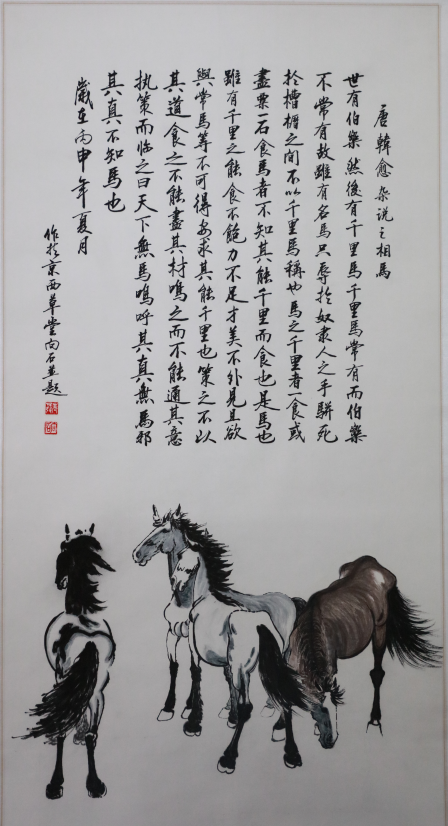 唐韓愈杂说之相馬
世有伯樂然後有千里馬千里馬常有而伯樂
不常有故雖有名馬只辱於奴隶人之手駢死
於槽櫪之间不以千里馬稱也馬之千里者一食或
盡粟一石食馬者不知其能千里而食也是馬也
雖有千里之能食不飽力不足才美不外見且欲
與常馬等不可得安求其能千里也策之不以
其道食之不能盡其材鳴之而不能通其意
执策而临之曰天下無馬嗚呼其真無馬邪
其真不知馬也
歲在丙申年夏月
作於京西草堂向石並題